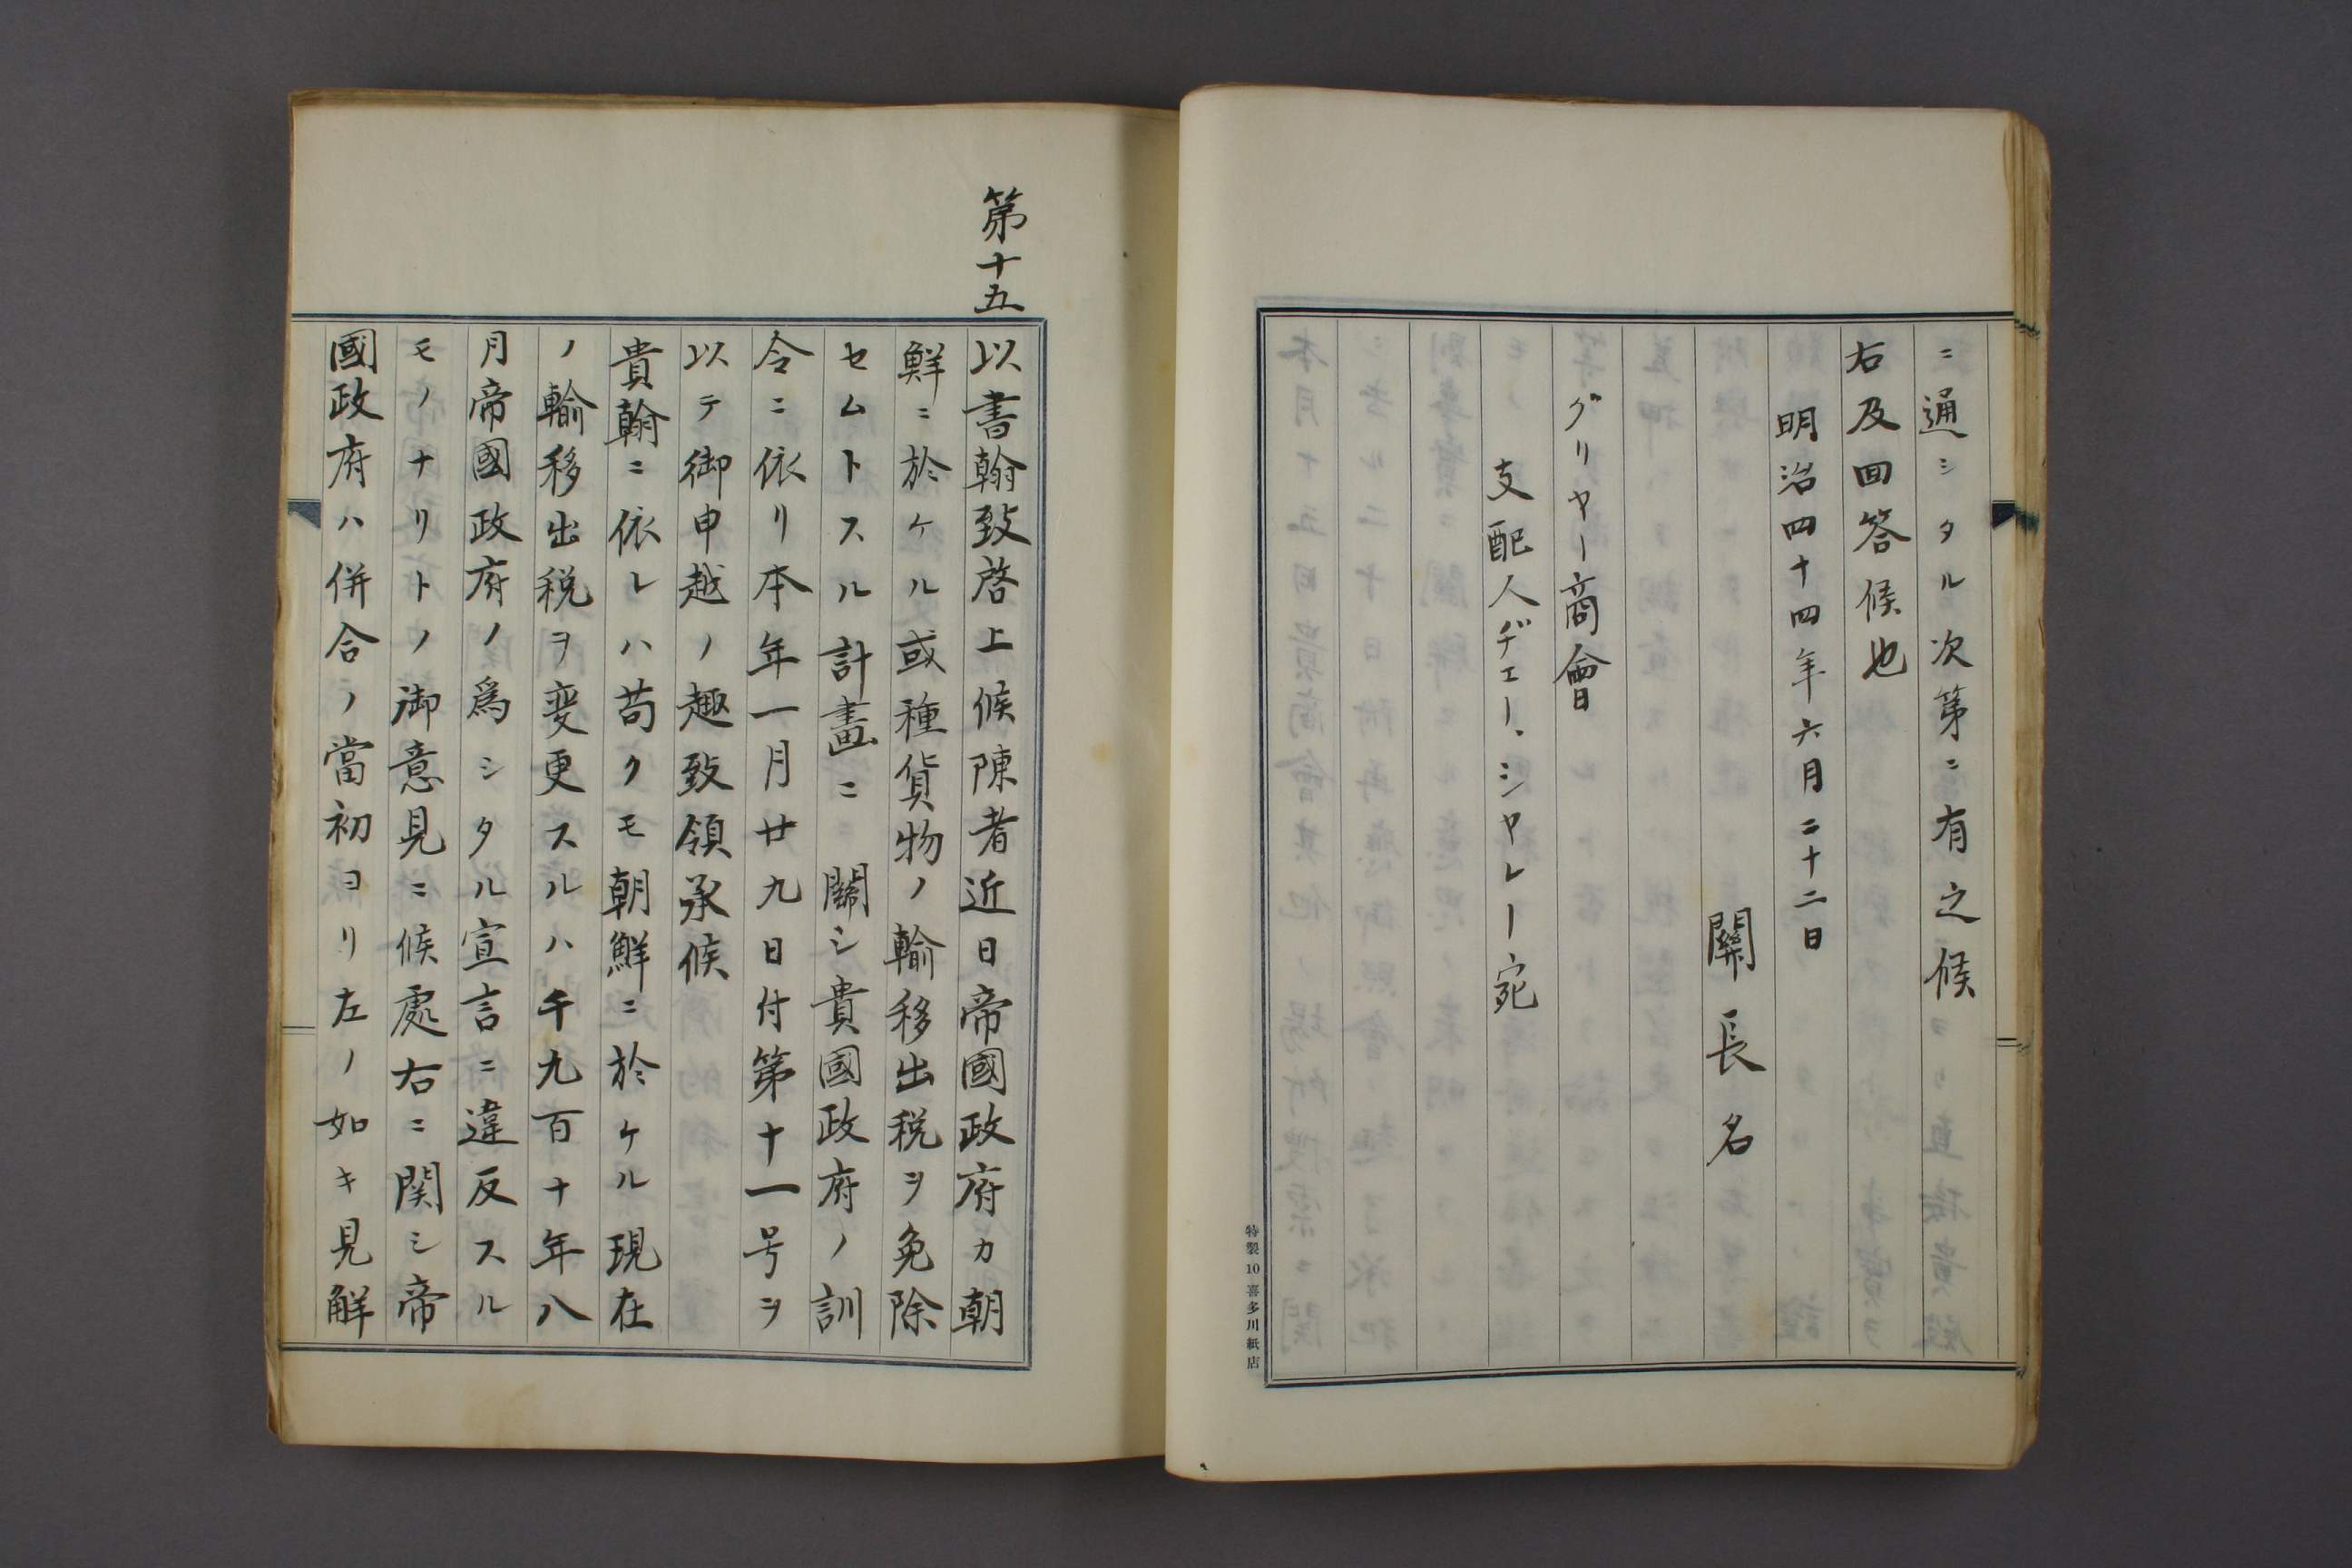 ニ通シタル次第ニ有之候
右及回答候也
明治四十四年六月二十二日
關長名
グリヤー商會
支配人ヂエー、シヤレー宛
特製10喜多川紙店
第十五
以書翰致啓上候陳者近日帝國政府カ朝
鮮ニ於ケル或種貨物ノ輸移出税ヲ免除
セムトスル計畫ニ關シ貴國政府ノ訓
令ニ依リ本年一月廿九日付第十一号ヲ
以テ御申越ノ趣致領承候
貴翰ニ依レハ苟クモ朝鮮ニ於ケル現在
ノ輸移出税ヲ変更スルハ千九百十年八
月帝國政府ノ爲シタル宣言ニ違反スル
モノナリトノ御意見ニ候處右ニ関シ帝
國政府ハ併合ノ當初ヨリ左ノ如キ見解